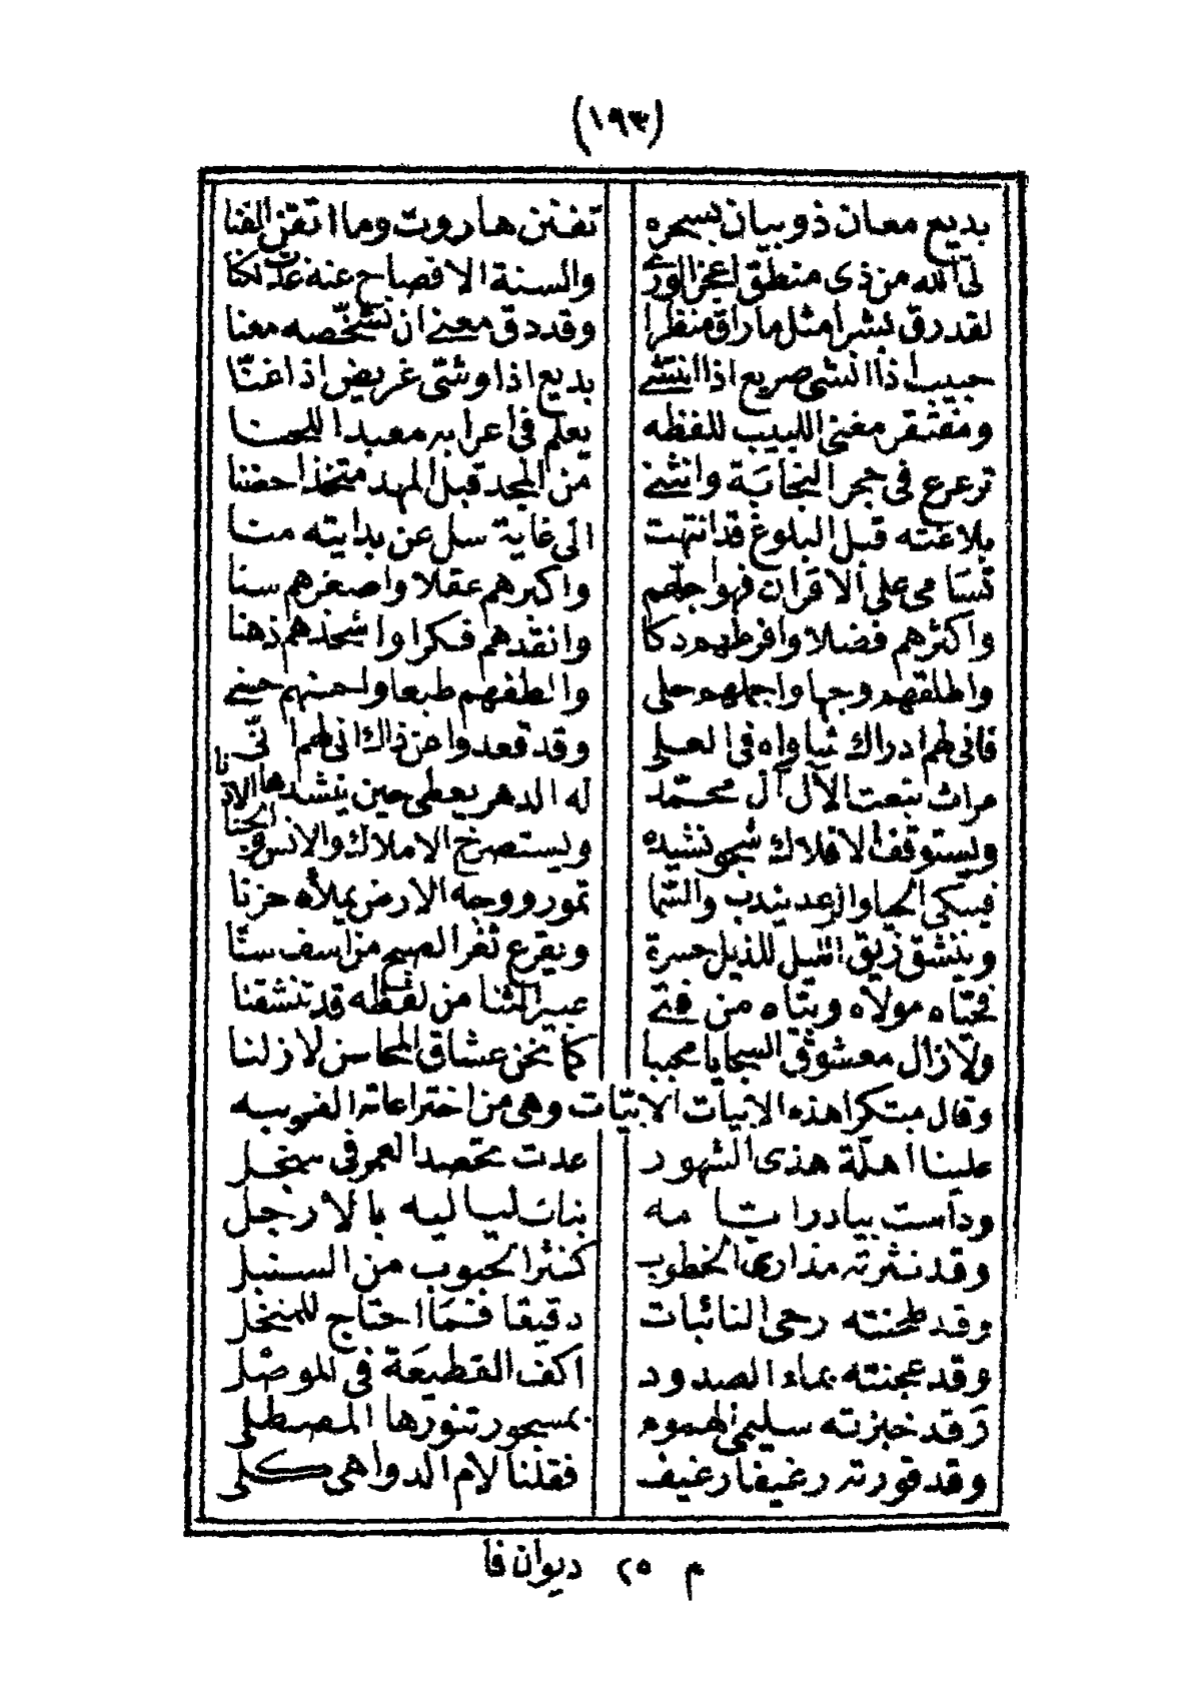 (١٩٣)
بديع معان ذو بيان بسحره تفنن هاروت وما اتقن الفنا
لى الله من ذى منطق اعجز الورى والسنة الافصاح عنه غدت لكنا
لقد رق نشرا مثل ما راق منظرا وقد دق معنى ان نشخصه معنا
حبيب اذا انشى صريع اذا انتشى بديع اذا وشى غريض اذا غنا
ومفتقر مغنى اللبيب للفظه يعلم فى اعرابه معبدا اللحنا
ترعرع فى حجر النجابة وانثنى من المجد قبل المهد متخذا حضنا
بلاغته قبل البلوغ قد انتهت الى غاية سل عن بدايته متنا
تسامى على الاقران فهو اجلهم واكبرهم عقلا واصغرهم سنا
واكثرهم فضلا وافرطهم ذكا وانقدهم فكرا واشحذهم ذهنا
واطلقهم وجها واجملهم حلى والطفهم طبعا واحسنهم حسنى
فانى لهم ادراك شاواه فى العلى وقد قعدوا عن ذاك انى لهم انى
مراث بنعت الآل آل محمد له الدهر يعطى حين ينشدها الاذنا
ويستوقف الافلاك شجو نشيده ويستصرخ الاملاك والانس والجنا
فيبكى الحيا والرعد يندب والسما تمور ووجه الارض يملأه حزنا
وينشق زيق الليل للذيل حسرة ويقرع ثغر الصبح من اسف سنا
فحياه مولاه وبياه من فتى عبير الثنا من لفظه قد تنشقنا
ولازال معشوق السجايا محببا كما نحن عشاق المحاسن لازلنا
وقال مبتكرا هذه الابيات الابيات وهى من اختراعاته الغريبه
علينا اهلة هذى الشهور غدت تحصد العمر فى منجل
وداست بيادر ايامه بنات لياليه بالارجل
وقد نثرته مذارى الخطوب كنثر الحبوب من السنبل
وقد طحنته رحى النائبات دقيقا فما احتاج للمنخل
وقد عجنته بماء الصدود اكف القطيعة فى الموصل
وقد خبزته سليمى الهموم بمسجور تنورها المصطلى
وقد قورته رغيفا رغيف فقلنا لام الدواهى كلى
م ٢٥ ديوان فا